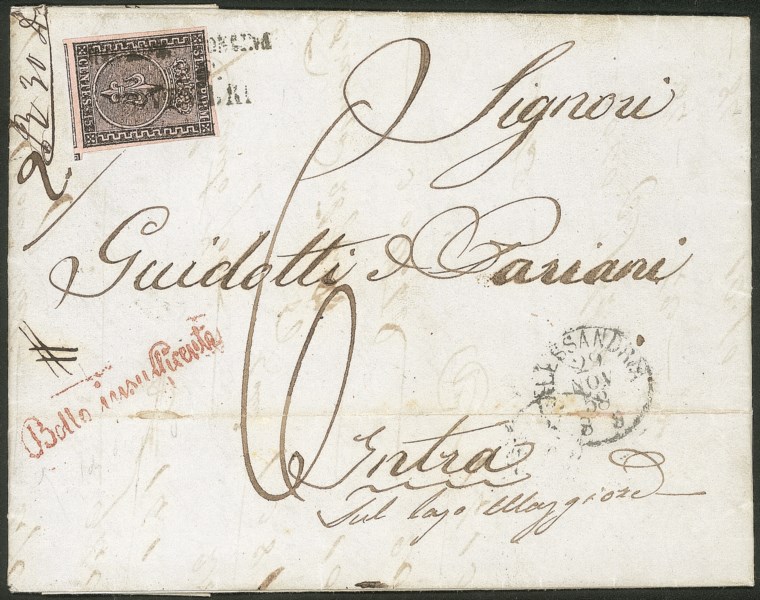 STATI PARM.
CENTES. 15
Signori
Guidotti e Pariani
6
Bollo insufficiente
ALESSANDRIA
29
NOV
Intra
Sul lago Maggiore